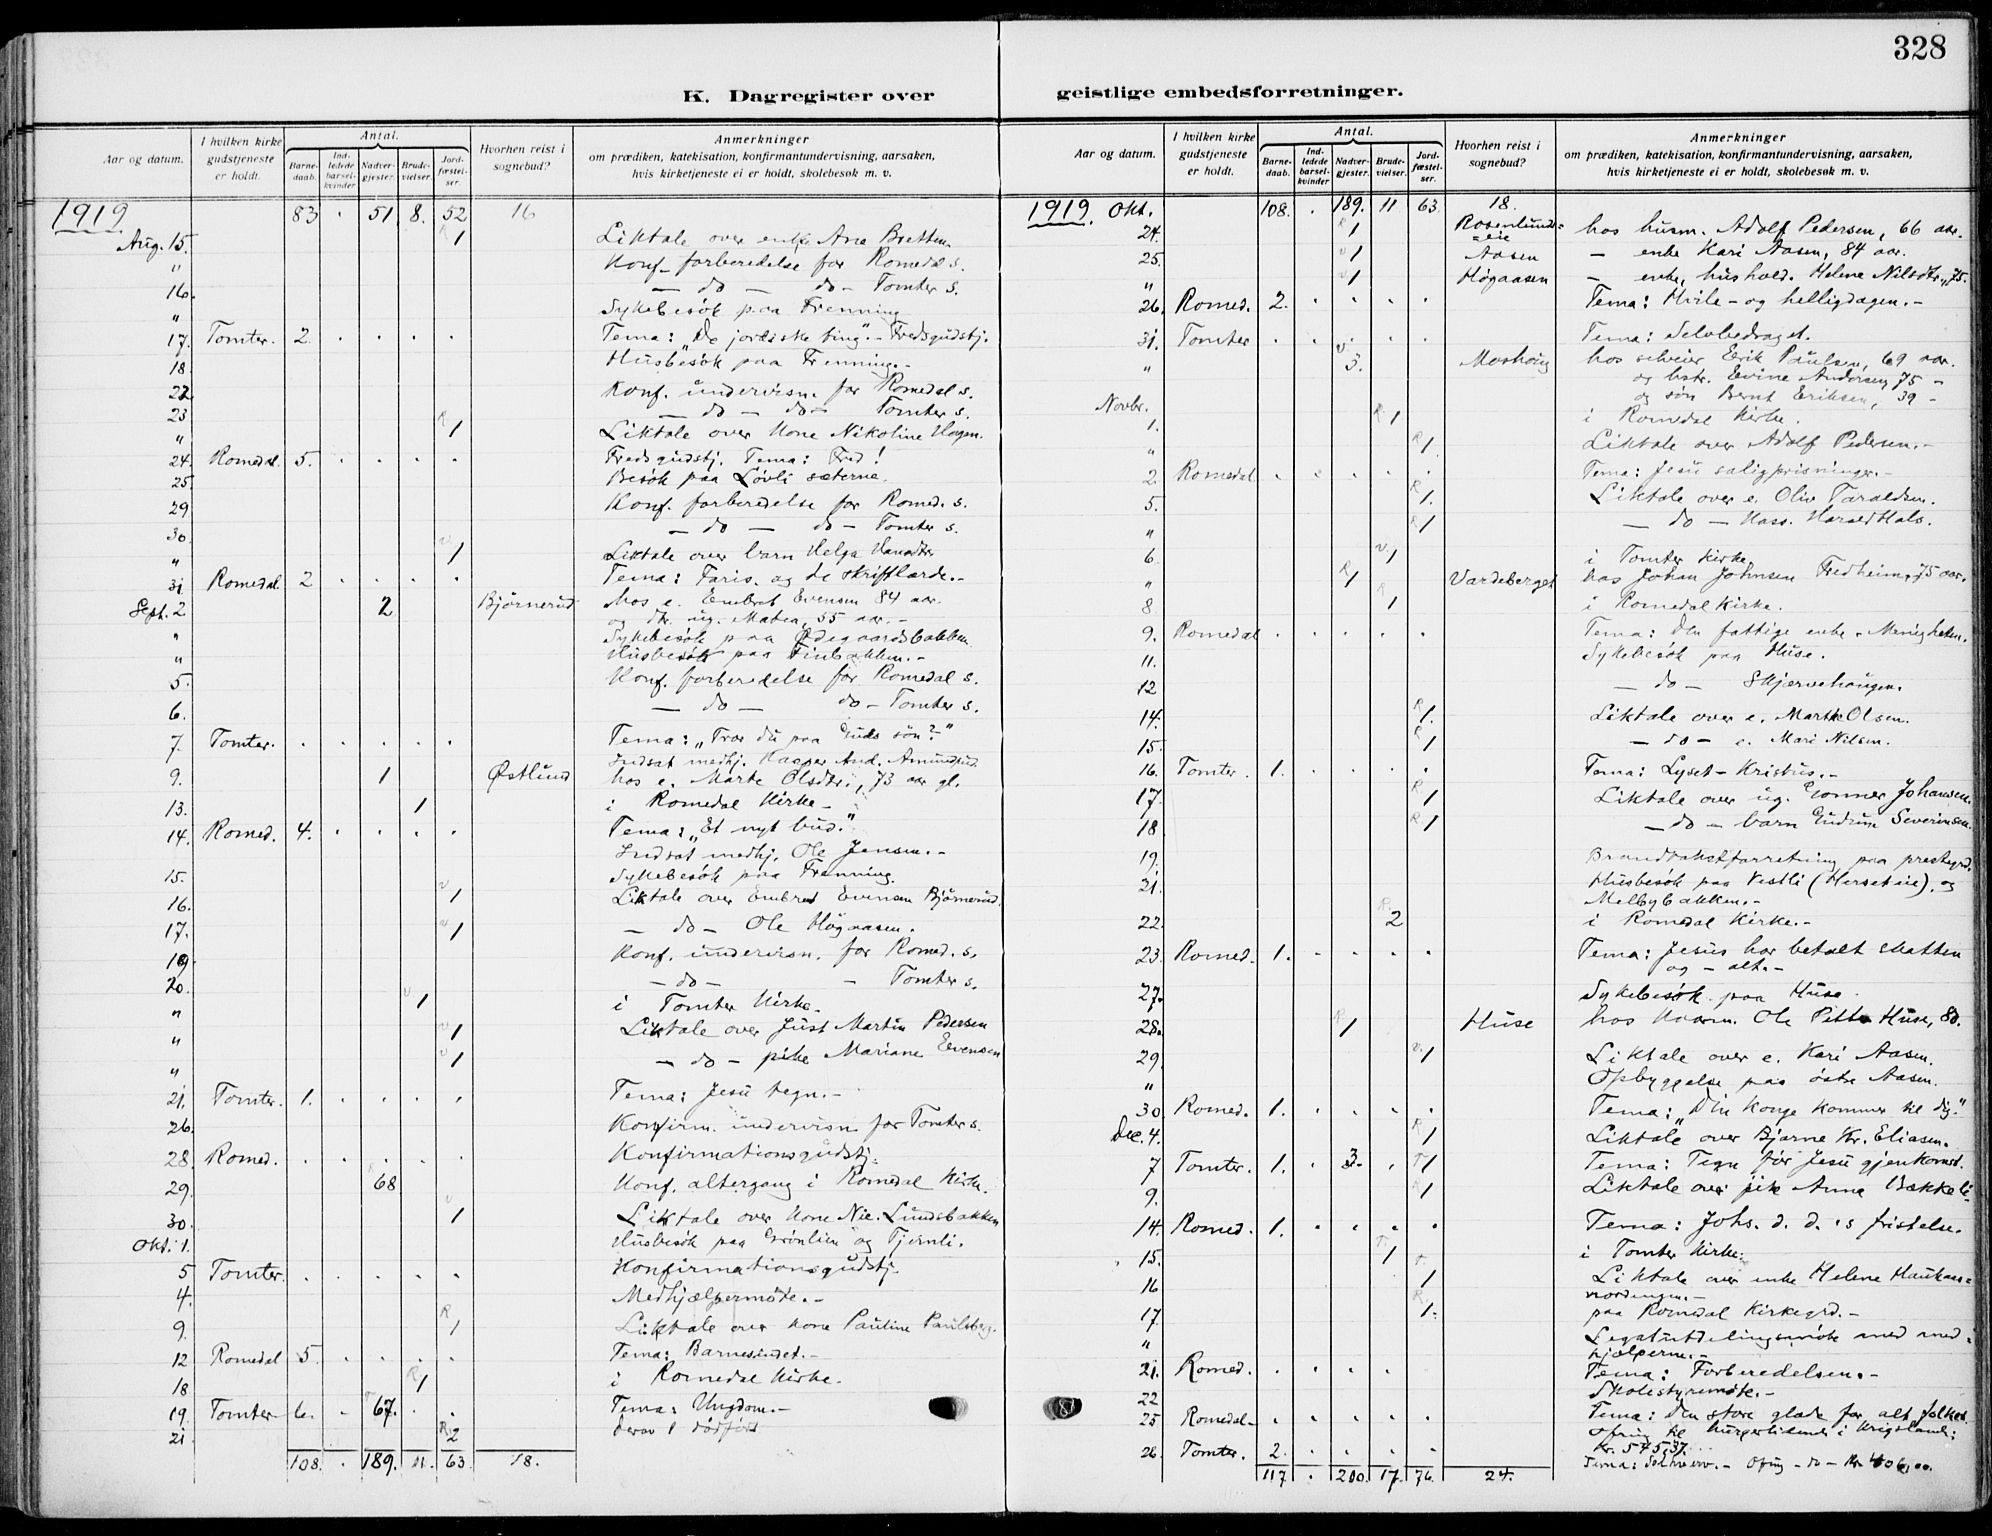 328
K. Dagregister over geistlige embedsforretninger.
Aar og datum. I hvilken kirke gudstjeneste er holdt. Antal. Barnedaab. Indledede barselkvinder Nadvergjester. Brudevielser. Jordfæstelser. Hvorhen reist i sognebud? Anmerkninger om prædiken, katekisation, konfirmantundervisning, aarsaken, hvis kirketjeneste ei er holdt, skolebesøk m. v.
1919 83 . 51 8. 52 16
Aug. 15. R 1 Liktale over enke Ane Bretten.
" Konf. forberedelse for Romedal s.
16. — do — do - Tomter s.
" Sykebesøk paa Frenning
17. Tomter. 2. . . . . Tema: "De jordiske ting". - Fredsgudstj.
18 Husbesøk paa Frenning. -
22 Konf. undervisn. for Romedal s.
23 — do — do — Tomter s.
" R 1 Liktale over kone Nikoline Hagen.
24. Romedal. 5. . . . . Fredsgudstj. Tema: Fred!
25 Besøk paa Løvli sæterne.
29 Konf. forberedelse for Romed. s.
30. — do — do — Tomter s.
" v 1 Liktale over barn Helga
31 Romedal 2 . . . . Tema: Faris. og de skriftlærde. -
Sept. 2 2 Bjørnerud hos e. Embret Evensen 84 aar.
og dtr. ug. Matea, 55 aar. -
" Sykebesøk paa Ødegaardsbakken
" Husbesøk paa Finbakken. -
5. Konf. forberedelse for Romedal s.
6. — do — do - Tomter s.
7. Tomter. . . . . . Tema: "Tror du paa Guds søn?"
Indsat medhj. Kasper And. Amundrud.
9. 1 Østlund hos e. Marte Olsdtr., 73 aar gl.
13. 1 i Romedal Kirke -
14. Romed. 4. . . . . Tema: "Et nyt bud."
Indsat medhj. Ole Jensen. -
15. Sykebesøk paa Frenning.
16. v 1 Liktale over Embret Evensen Bjørnerud.
17. v 1 — do — Ole Høgaasen.
19. Konf. undervisn. for Romed. s.
20. — do — - Tomter s.
" v 1 i Tomter Kirke. -
" v 1 Liktale over Just Martin Pedersen
" v 1 — do — pike Mariane Evensen
21. Tomter. 1. . . . . Tema: Jesu tegn. -
26. Konfirm. undervisn for Tomter s.
28. Romed. . . . . . Konfirmationsgudstj.
29. R 68 Konf. altergang i Romedal Kirke.
30. v 1 Liktale over kone Nie. Lundsbakken
Okt. 1. Husbesøk paa Grønlien og Tjernli.
5 Tomter. . . . . . Konfirmationsgudstj
4. Medhjælpermøte. -
9. R 1 Liktale over kone Pauline Paulsberg.
12 Romedal 5. . . . . Tema: Barnesindet. -
18 R 1 i Romedal Kirke.
19. Tomter 6. . T 67. . . Tema: Ungdom. -
21 R 2 derav 1 dødfødt
108. . 189. 11. 63. 18.
Aar og datum. I hvilken kirke gudstjeneste er holdt. Antal. Barnedaab. Indledede barselkvinder Nadvergjester. Brudevielser. Jordfæstelser. Hvorhen reist i sognebud? Anmerkninger om prædiken, katekisation, konfirmantundervisning, aarsaken, hvis kirketjeneste ei er holdt, skolebesøk m. v.
1919. Okt. 108. . 189. 11 63 18.
24. R 1 Rosenlundseie hos husm. Adolf Pedersen, 66 aar.
25. v 1 Aasen — enke Kari Aasen, 84 aar.
" v 1 Høgaasen — enke, hushold. Helene Nilsdtr., 75.
26. Romed. 2. . . . . Tema: Hvile- og helligdagen. -
31. Tomter . . . . . Tema: Selvbedraget.
" v 3. Moshaug hos selveier Erik Paulsen, 69 aar.
og hstr. Evine Andersen, 75 -
og søn Bernt Eriksen, 39 -
Novbr. 1. R 1 i Romedal Kirke.
" R 1. Liktale over Adolf Pedersen. -
2. Romedal . . . . . Tema: Jesu saligprisninger. -
5. R 1. Liktale over e. Oliv Taraldsen.
" R 1 — do — Kass. Harald Hals.
6 v 1 i Tomter Kirke
" R 1 Vardeberget hos Johan Johnsen Fredheim, 75 aar.
8. R 1 i Romedal Kirke.
9. Romedal . . . . . Tema: Den fattige enke. Menigheten.
11. Sykebesøk paa Huse.
12 — do — Skjervehaugen.
14. R 1. Liktale over e. Marthe Olsen.
15. R 1 — do — e. Mari Nilsen.
16. Tomter. 1. . . . . Tema: Lyset - Kristus. -
17. R 1 Liktale over ug. Gunner Johansen.
18 R 1 — do — barn Gudrun Severinsen.
19. Brandtakstforretning paa prestegrd.
21. Husbesøk paa Vestli (Herseteie), og
Melbybakken. -
22. R. 2 i Romedal Kirke. -
23. Romed. 1. . . . . Tema: Jesus har betalt skatten
og - alt. -
27. Sykebesøk paa Huse.
28. R 1 Huse hos kaarm. Ole Petter Huse, 80.
29. v. 1 Liktale over e. Kari Aasen.
" Opbyggelse paa østre Aasen.
30 Romed. 1. . . . . Tema: "Din konge kommer til dig."
Dec. 4. R 1 Liktale over Bjarne Kr. Eliasen.
7 Tomter. 1. . 3. . T 1 Tema: Tegn før Jesu gjenkomst.
9. R 1 Liktale over pike Anna Bækkeli
14. Romed. 1. . . . . Tema: Johs. d. d.'s fristelse.
15. T. 1 i Tomter Kirke.
16 T. 1 Liktale over enke Helene Haukaasnordengen. -
17. R. 1. paa Romedal Kirkegrd. -
" Legatutdelingsmøte med medhjælperne. -
21. Romed. . . . . Tema: Forberedelsen. -
22 Skolestyremøte. -
25 Romedal - . . . . . Tema: Den store glæde for alt folket.
Ofring til hungerlidende i Krigslande:
Kr. 545,37.
26. Tomter. 2. . . . . Tema: - Ofring - do - Kr 406,00.
117 . 200. 17. 76. 24.